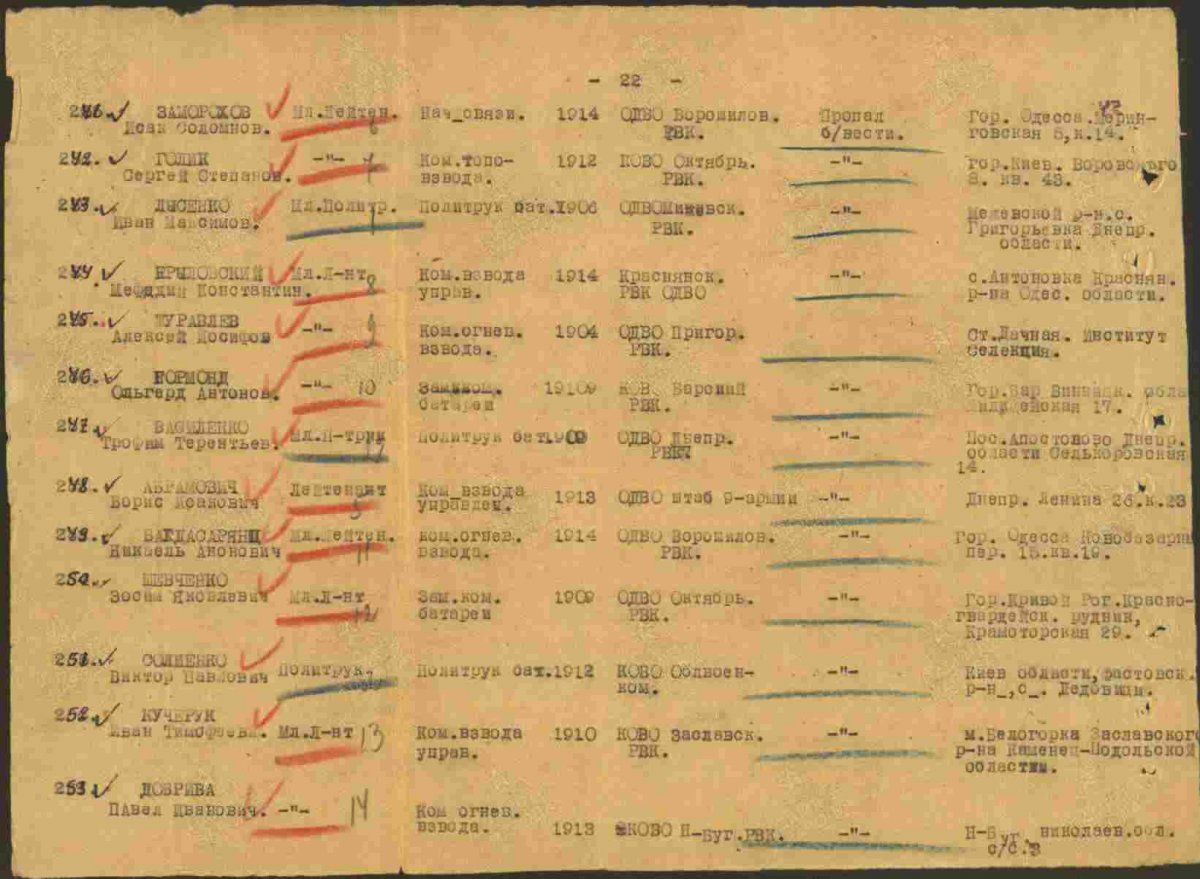 - 22 -
241. ЗАМОРОХОВ Мл.Лейтен. Нач_связи. 1914 ОДВО Ворошилов. Пропал Гор. Одесса.Мерин-
Исай Соломнов. 6 РВК. б/вести. говская 5,к.14.
242. ГОЛИК -"- Ком.топо- 1912 КОВО Октябрь. -"- гор.Киев. Воровского
Сергей Степанов. 7 взвода. РВК. 8. кв. 43.
243. ЛЫСЕНКО Мл.Политр. Политрук бат.1906 ОДВО -"-
Иван Максимов. РВК. Григорьевка Днепр.
области.
244 Мл.Л-нт Ком.взвода 1914 Краснянск. -"- с.Антоновка Краснян.
Константин. 8 управ. РВК ОДВО р-на Одес. области.
245. ЖУРАВЛЕВ -"- Ком.огнев. 1904 ОДВО Пригор. -"- Ст.Дачная. Институт
Алексей Иосифов 9 взвода. РВК. Селекция.
246. -"- 10 Зам.ком. 19109 КОВ. Барский -"- Гор.Бар Винницк. обла
Ольгерд Антонов. батареи РВК. 17.
247. ВАСИЛЕНКО Политрук бат.1909 ОДВО Днепр. -"- Пос.Апостолово Днепр.
Трофим Терентьев. области Селькоровская
14.
248. АБРАМОВИЧ Лейтенант Ком_взвода 1913 ОДВО штаб 9-армии -"- Днепр. Ленина 26.к.23
Борис Исакович 5 управлен.
249. БАГДАСАРЯНЦ Мл.Лейтен. Ком.огнев. 1914 ОДВО Ворошилов. -"- Гор. Одесса Новобазарны
11 взвода. РВК. пер. 15.кв.19.
250. ШЕВЧЕНКО
Зосим Яковлевич Мл.Л-нт Зам.ком. 1909 ОДВО Октябрь. -"- Гор.Кривой Рог.Красно-
12 батареи РВК. гвардейск. рудник,
Краматорская 29.
251.
Виктор Павлович Политрук. Политрук бат.1912 КОВО Облвоен- -"- Киев области,фастовск.
ком. р-н_,с_. Дедовищи.
252. КУЧЕРУК
Иван Тимофеев. Мл.Л-нт 13 Ком.взвода 1910 КОВО Заславск. -"- м.Белогорка Заславского
управ. РВК. р-на Каменец-Подольской
областим.
253. ДОБРИВА
ПАвел Иванович. -"- 14 Ком огнев.
взвода. 1913 КОВО Н-Буг.РВК. -"- Н-Буг николаев.обл.
с/с.